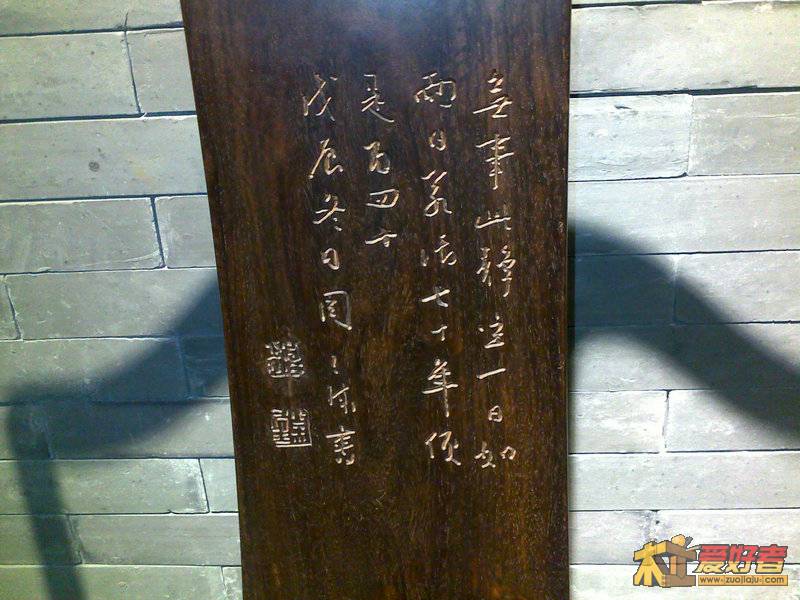 無事此靜坐一日如
兩日若活七十年便
是百四十
戊辰冬日
爱好者
www.zuojiaju.com